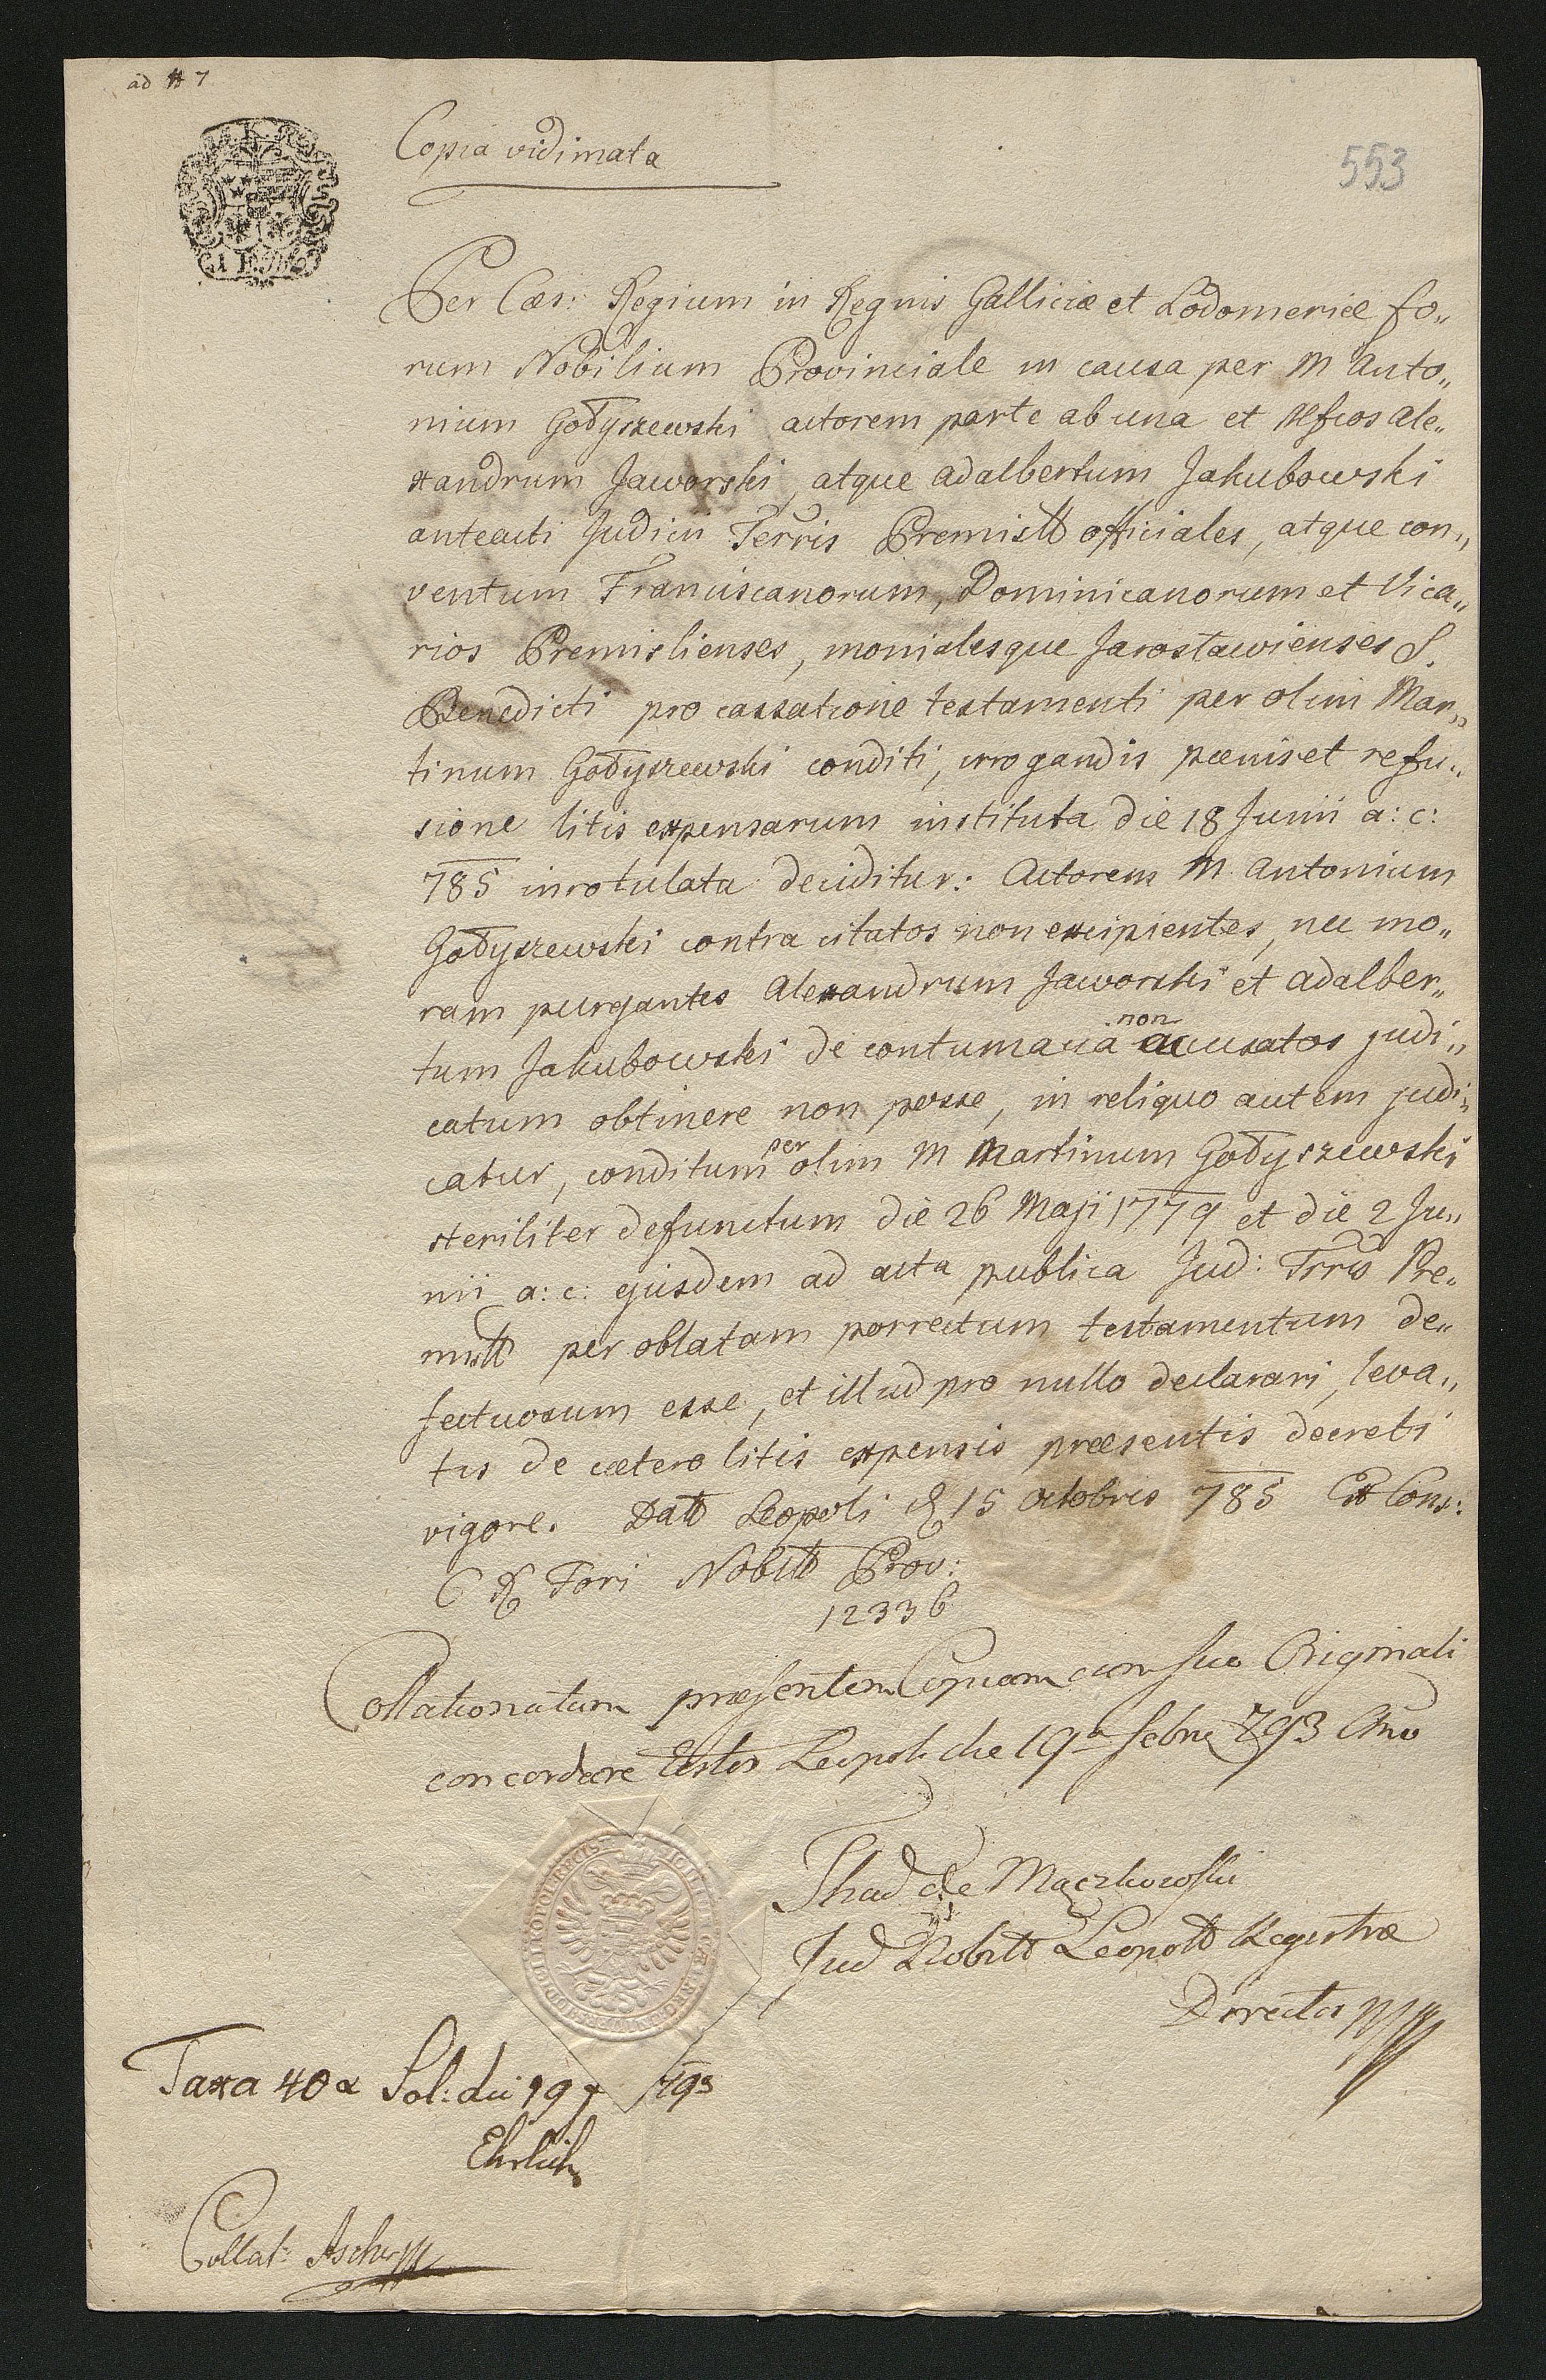 ad # 7
Copia vidimata
553
Per Cæs: Regium in Regnis Galliciæ et Lodomeriæ fo„
rum Nobilium Provinciale in causa per M Anto„
nium Godyszewski actorem parte ab una et Mfcos Ale„
xandrum Jaworski, atque Adalbertum Jakubowski
anteacti Judicii Terris Premisll officiales, atque con„
ventum Franciscanorum, Dominicanorum et Vica„
rios Premislienses, monialesque Jarosławienses S.
Benedicti pro cassatione testamenti per olim Mar„
tinum Godyszewski conditi, irrogandis pœnis et refu„
sione litis expensarum instituta die 18 Junii a: c:
785 inrotulata deciditur: Actorem M Antonium
Godyszewski contra citatos non excipientes, nec mo„
ram purgantes Alexandrum Jaworski et Adalber„
tum Jakubowski de contumacia non accusatos judi„
catum obtinere non posse, in reliquo autem judi„
catur, conditum per olim M Martinum Godyszewski
steriliter defunctum die 26 Maji 1779 et die 2 Ju„
nii a: c: ejusdem ad acta publica Jud: Trris Pre„
misll per oblatam porrectum testamentum de„
fectuosum esse, et illud pro nullo declarari, leva„
tis de cætero litis expensis præsentis decreti
vigore. Datt Leopoli d 15 Octobris 785 Ex Cons:
C R Fori Nobill Prov:
12336
Collationatam præsentem Copiam cum suo Originali
concordare testor Leopoli die 19a febri 793 Ano
Thad de Mączkowski
Jud Nobill Leopoll Regestræ
Director
Taxa 40 x Sol: die 19 793
Ehrlich
Collat: Ascher